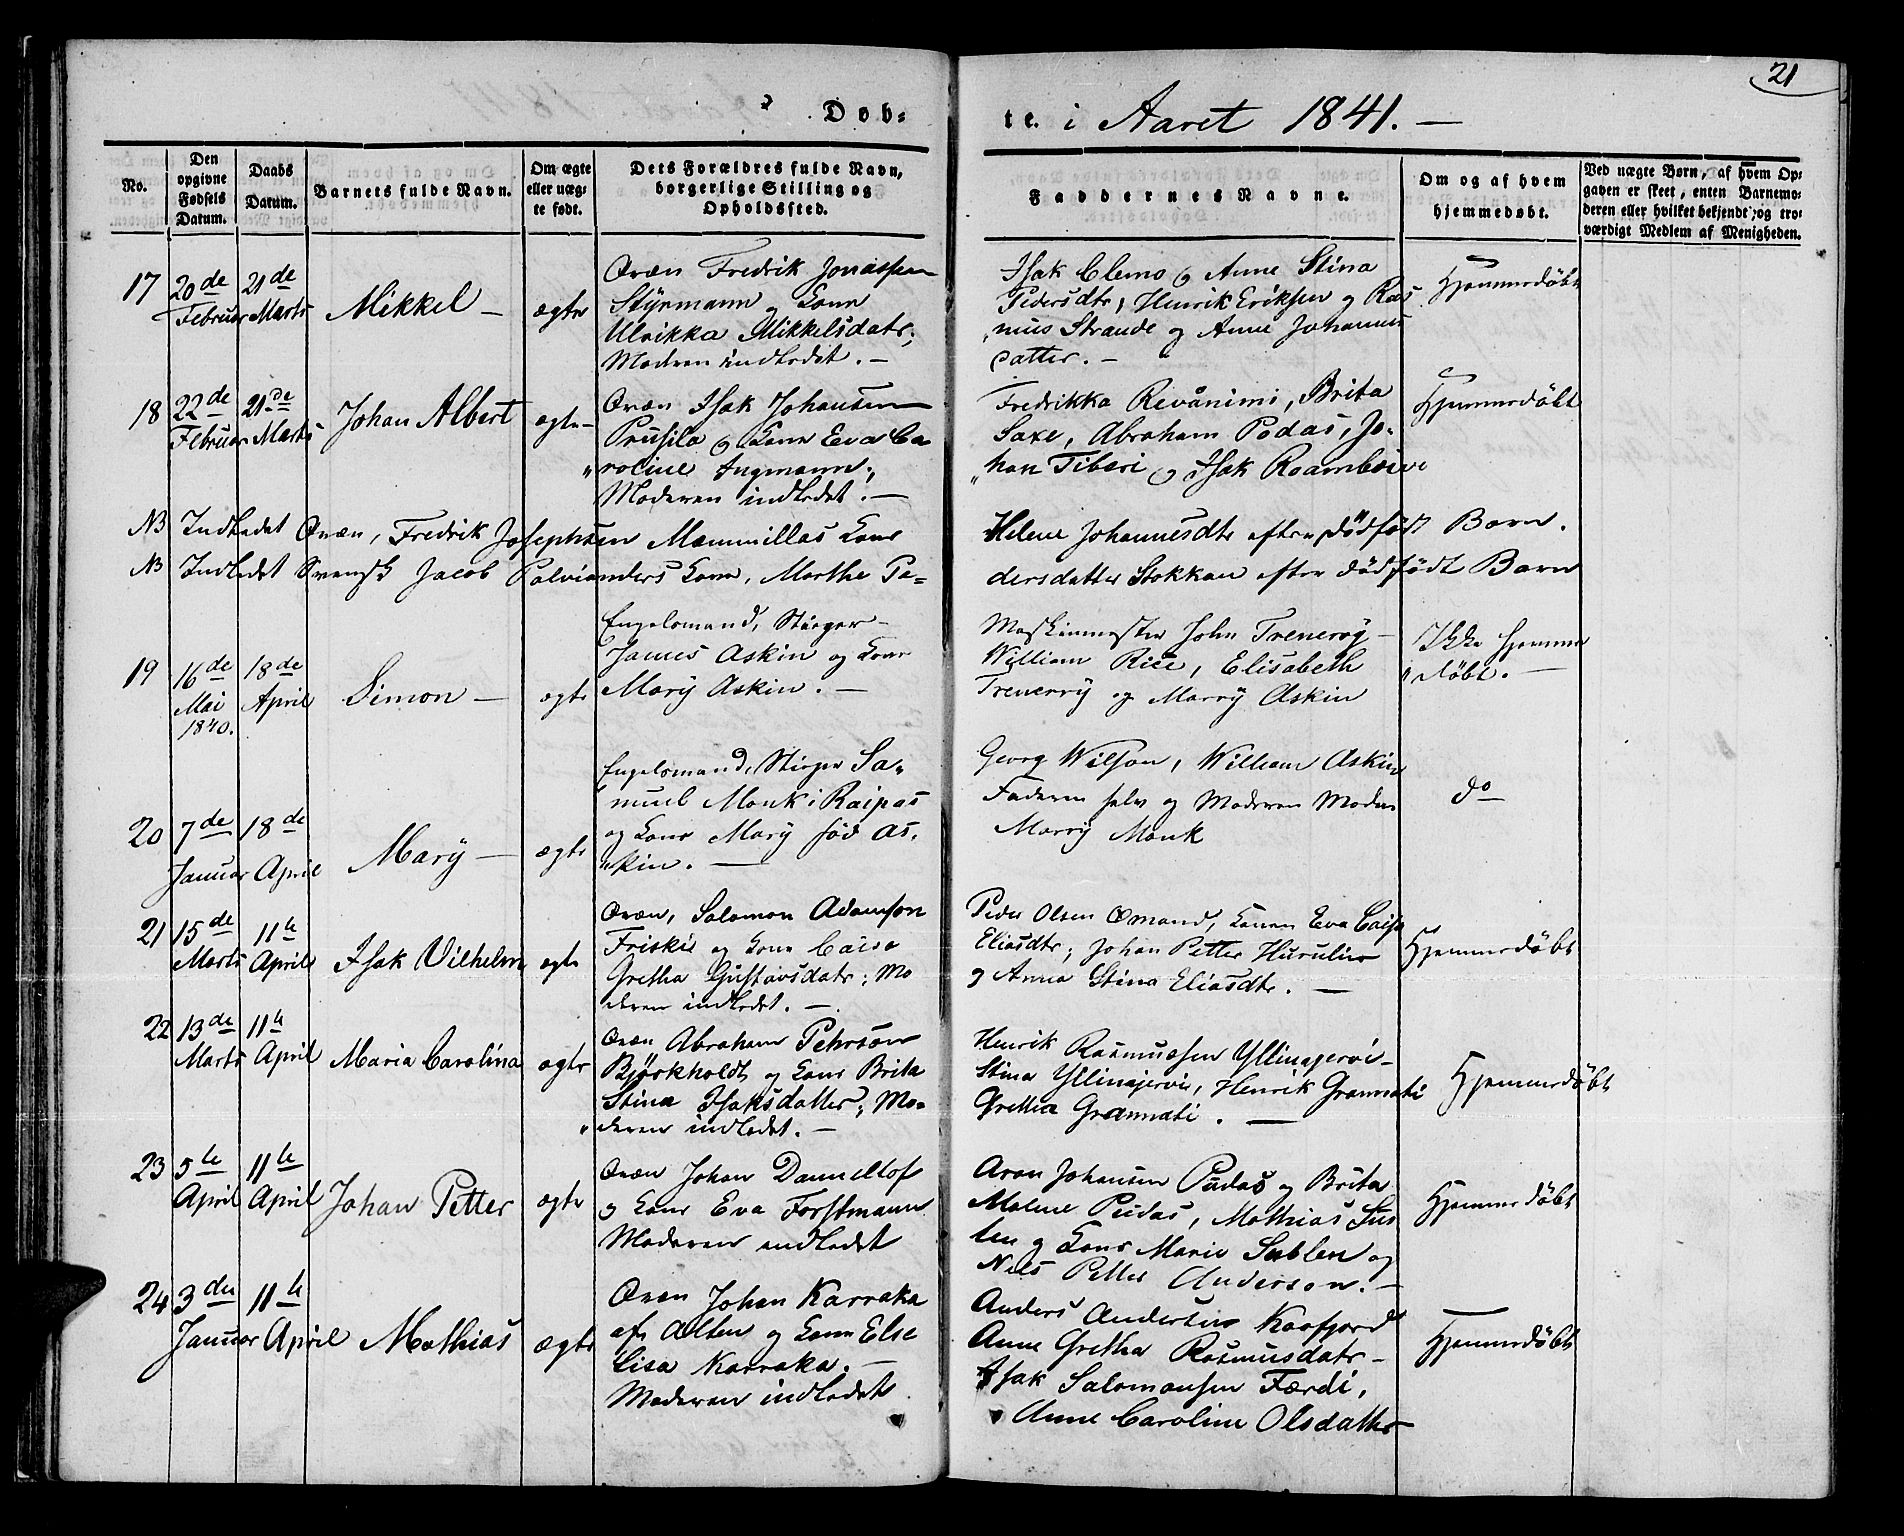 21
Døb-
te. i Aaret 1841. —
No.
Den opgivne Fødsels Datum.
Daabs Datum.
Barnets fulde Navn.
Om ægte eller uæg-te født.
Dets Forældres fulde Navn, borgerlige Stilling og Opholdssted.
Faddernes Navne.
Om og af hvem hjemmedøbt.
Ved uægte Børn, af hvem Op-gaven er skeet, enten Barnemo-deren eller hvilket bekjendt, og tro-værdigt Medlem af Menigheden.
17
20de Februar
21de Marts
Mikkel —
ægte
Qvæn Fredrik Jonassen
Styrmann og Kone
Ulrikka Mikkelsdatr;
Moderen indledet. —
Isak Clemo og Anne Stina
Pedersdtr, Henrik Eriksen og Ras
mus Strande og Anne Johannes
datter. —
Hjemmedøbt
18
22de Februar
21de Marts
Johan Albert
ægte —
Qvæn Isak Johansen
Prusila og Kone Eva Ca
"roline Ingmann;
Moderen indledet. —
Fredrikka Revånimi, Brita
Saxe, Abraham Podas, Jo-
"han Tiberi og Isak
Hjemmedøbt
NB Indledet Qvæn, Fredrik Josephsen Mammillas Kone Helene Johannesdtr efter dødfødt Barn.
NB Indledet Svensk Jacob Palvianders Kone, Marthe Pe-dersdatter Stokkan efter dødfødt Barn
19
16de Mai 1840.
18de April
Simon —
ægte
Engelsmand, Stiger —
James Askin og Kone
Mary Askin. —
Maskinmester John Trenerry —
William Rice, Elisabeth
Trenerry og Marry Askin
Ikke hjemme
"døbt. —
20
7de Januar
18de April
Mary —
ægte
Engelsmand, Stiger Sa-
"muel Monk i Raipas
og Kone Mary fød As-
"kin. —
Georg Wilson, William Askin
Faderen selv og Moderen Moder
Marry Monk
do
21
15de Marts
11te April
Isak Vilhelm
ægte
Qvæn, Salomon Adamson
Friskis og Kone Caisa
Gretha Gustavsdatr; Mo
deren indledet. —
Peder Olsen Qmand, Konen Eva Caisa
Eliasdtr; Johan Petter Hurulin
og Anna Stina Eliasdtr. —
Hjemmedøbt
22
13de Marts
11te April
Maria Carolina
ægte
Qvæn Abraham Pehrson
Bjørkholdt og Kone Brita
Stina Isaksdatter; Mo-
"deren indledet. —
Henrik Rasmusen Yllinajervi —
Stina Yllinajervi, Henrik Grannati
Gretha Grannati. —
Hjemmedøbt
23
5te April
11te April
Johan Petter
ægte
Qvæn Johan Danneltof
og Kone Eva Forstmann
Moderen indledet
Aron Johansen Pudas og Brita
Malene Pudas, Mathias
og Kone Marie og
Nels Petter Anderson. —
Hjemmedøbt
24
3die Januar
11te April
Mathias
ægte
Qvæn Johan Karraka
af Alten og Kone Else
Lisa Karraka. —
Moderen indledet
Anders Andersen Kaafjord
Anne Gretha Rasmusdatr —
Isak Salomonsen Færdi,
Anne Caroline Olsdatter
Hjemmedøbt